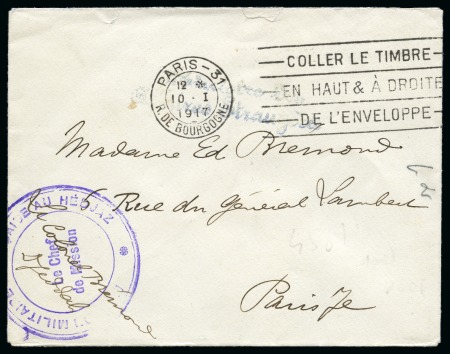 PARIS-31
12 *
10 · I
1917
R. DE BOURGOGNE
COLLER LE TIMBRE
EN HAUT & À DROITE
DE L'ENVELOPPE
Madame Ed Bremond
5 Rue du Général Lambert
Paris 7e
MILITAIRE
AU HEDJAZ
Le Chef
de Mission
Colonel Bremond
Djeddah